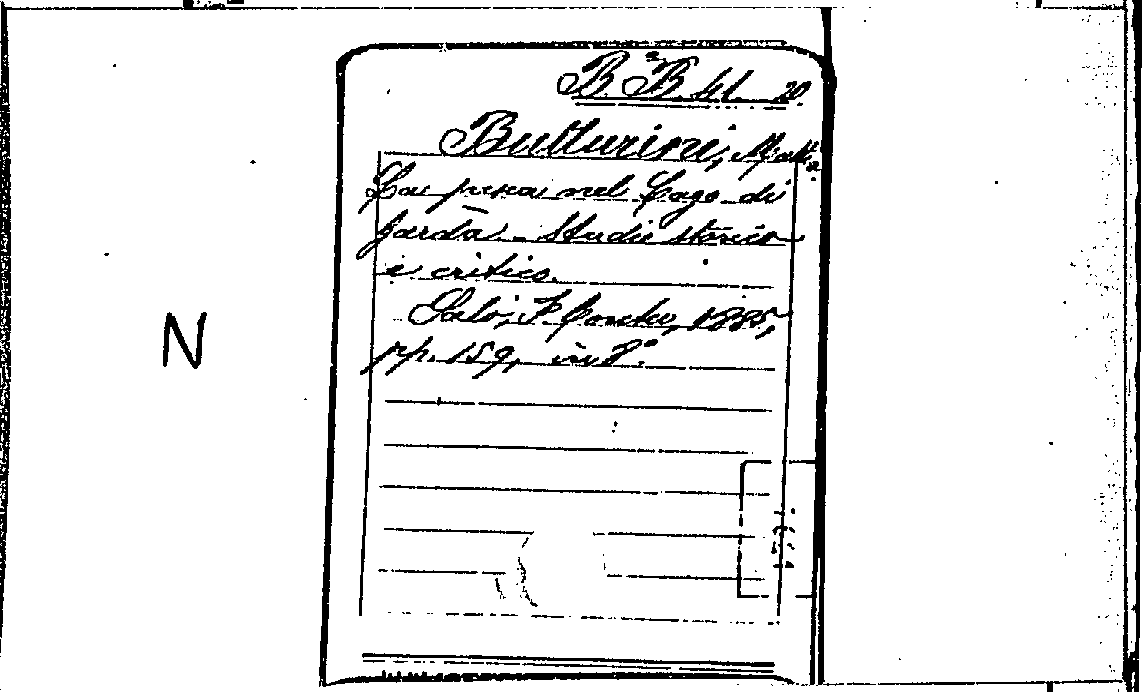 B.ª B. 41. 20
Butturini, Matt.ª
La pesca nel Lago di
Garda - Studio storico
e critico.
Salò, F. Conter, 1885,
pp. 159, in 8.º
N